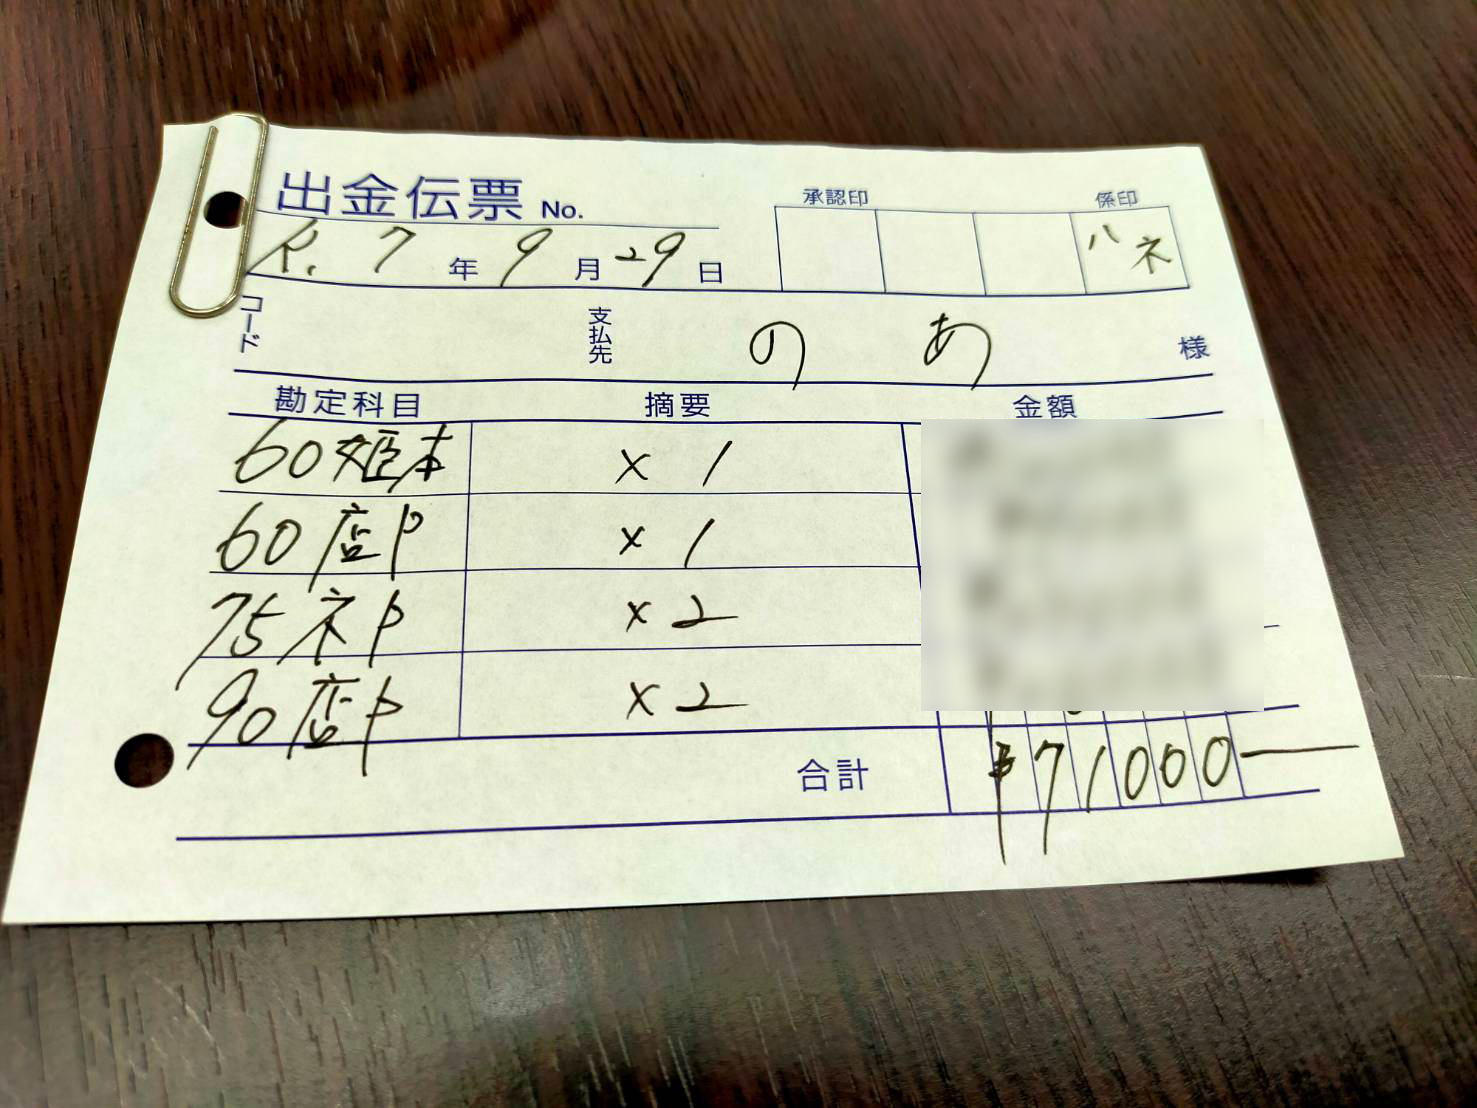 出金伝票 No.
承認印 係印
R. 7 年 9 月 29 日
ハネ
コード 支払先 のあ 様
勘定科目 摘要 金額
60姫本 × 1
60店P × 1
75ネP × 2
90店P × 2
合計 ¥71000